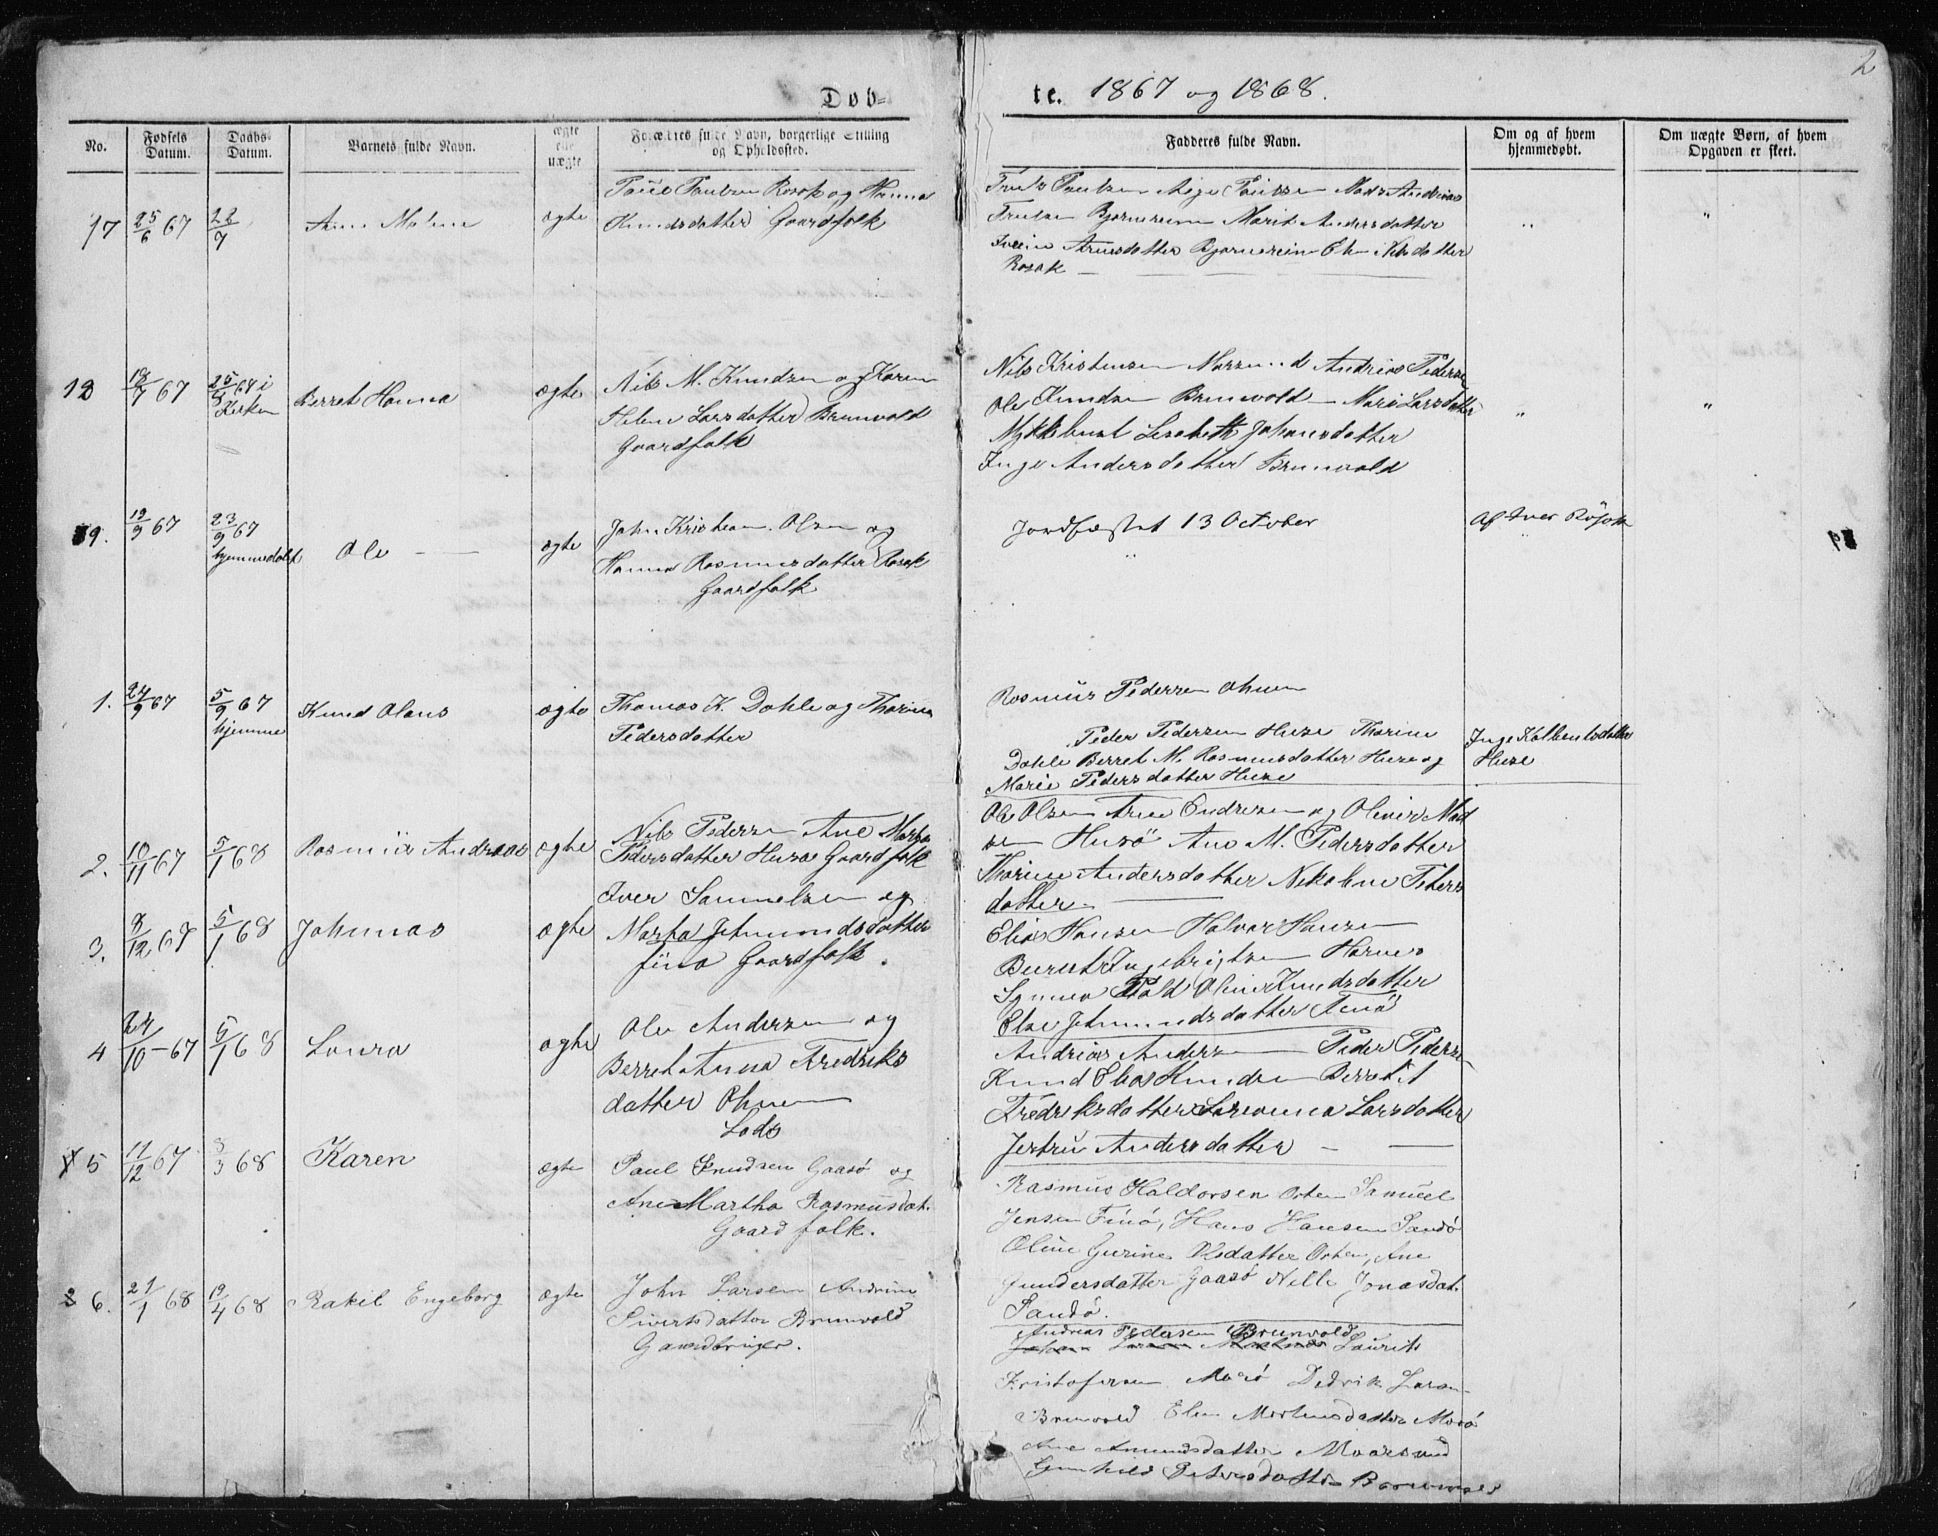 2
Døb-
te. 1867 og 1868.
No.
Fødsels Datum.
Daabs- Datum.
Barnets fulde Navn.
ægte elle uægte
Forældres fulde Navn, borgerlige Stilling
og Opholdssted.
Fadderes fulde Navn.
Om og af hvem
hjemmedøbt.
Om uægte Børn, af hvem
Opgaven er skeet.
17 25/6 67 22/7
ægte
Knudsdatter Gaardfolk
Marit Andersdatter
Rosok
18 18/7 67 25/8 67 i Kirken
Berret Hanna
ægte
Nils M. Knudsen og Karen
Helene Larsdatter Brunvold
Gaardfolk
Nils Kristensen Andrias Pederse
Ole Knudsen Brunvold Mari Larsdatter
Myklebust Lisabeth Johansdatter
Inge Andersdatter Brunvold
19. 19/9 67 23/9 67 hjemmedøbt
Ole
ægte
John Kristian Olsen og
Hanna Rasmusdatter Rosok
Gaardfolk
Jordfæstet 13 October
Af Iver Rosok
1. 24/9 67 5/9 67 hjemme
Knud Olaus
ægte
Thomas K. Dahle og Thorine
Pedersdatter
Rasmus Pedersen Ohnen
Peder Pedersen Huse Thorine
Dahle Berret M. Rasmusdatter Huse og
Marie Pedersdatter Huse
Huse
2. 10/11 67 5/1 68
Rasmus Andreas
ægte
Nils Pedersen Ane Marta
Pedersdatter Huse Gaardfolk
Ole Olsen Arne Endresen og Oliver Mad
sen Husø Ane M. Pedersdatter
Thorine Andersdatter Nikoline Peders
datter
3. 8/12 67 5/1 68
Johannas
ægte
Iver Samuelsen og
Marta Jehmundsdatter
finø Gaardfolk.
Elias Hansen Halvor Hansen
Berent Ingebrigtsen Harnes
Synnøva Oline Knudsdatter
Else Jehmundsdatter Finø
4 24/10 - 67 5/1 68
Laura
ægte
Ole Andersen og
Berret Anna Fredriks
datter Ohnen
Lods
Andrias Andersen Peder Pederse
Knud Elias Knudsen Berret
Fredriksdatter Larsdatter
Jertru Andersdatter
5 11/12 67 3/3 68
Karen
ægte
Paul Knudsen Gaasø og
Ane Martha Rasmusdat.
Gaardfolk.
Rasmus Haldorsen Orten Samuel
Jensen Finø, Hans Hansen Sandø
Oline Gurine Olsdatter Orten, Ane
Gundersdatter Gaasø Nille Jonasdat.
Sandø.
6. 21/1 68 19/4 68
Rakel Engeborg
ægte
John Larsen Andrine
Sivertsdatter Brunvold
Gaardbruger.
Andreas Pedersen Brunvold
Laurits
Kristofersen Mosø Didrik Larsen
Brunvold Elen Mortensdatter Mosø
Ane Amundsdatter
Gunhild Petersdatter